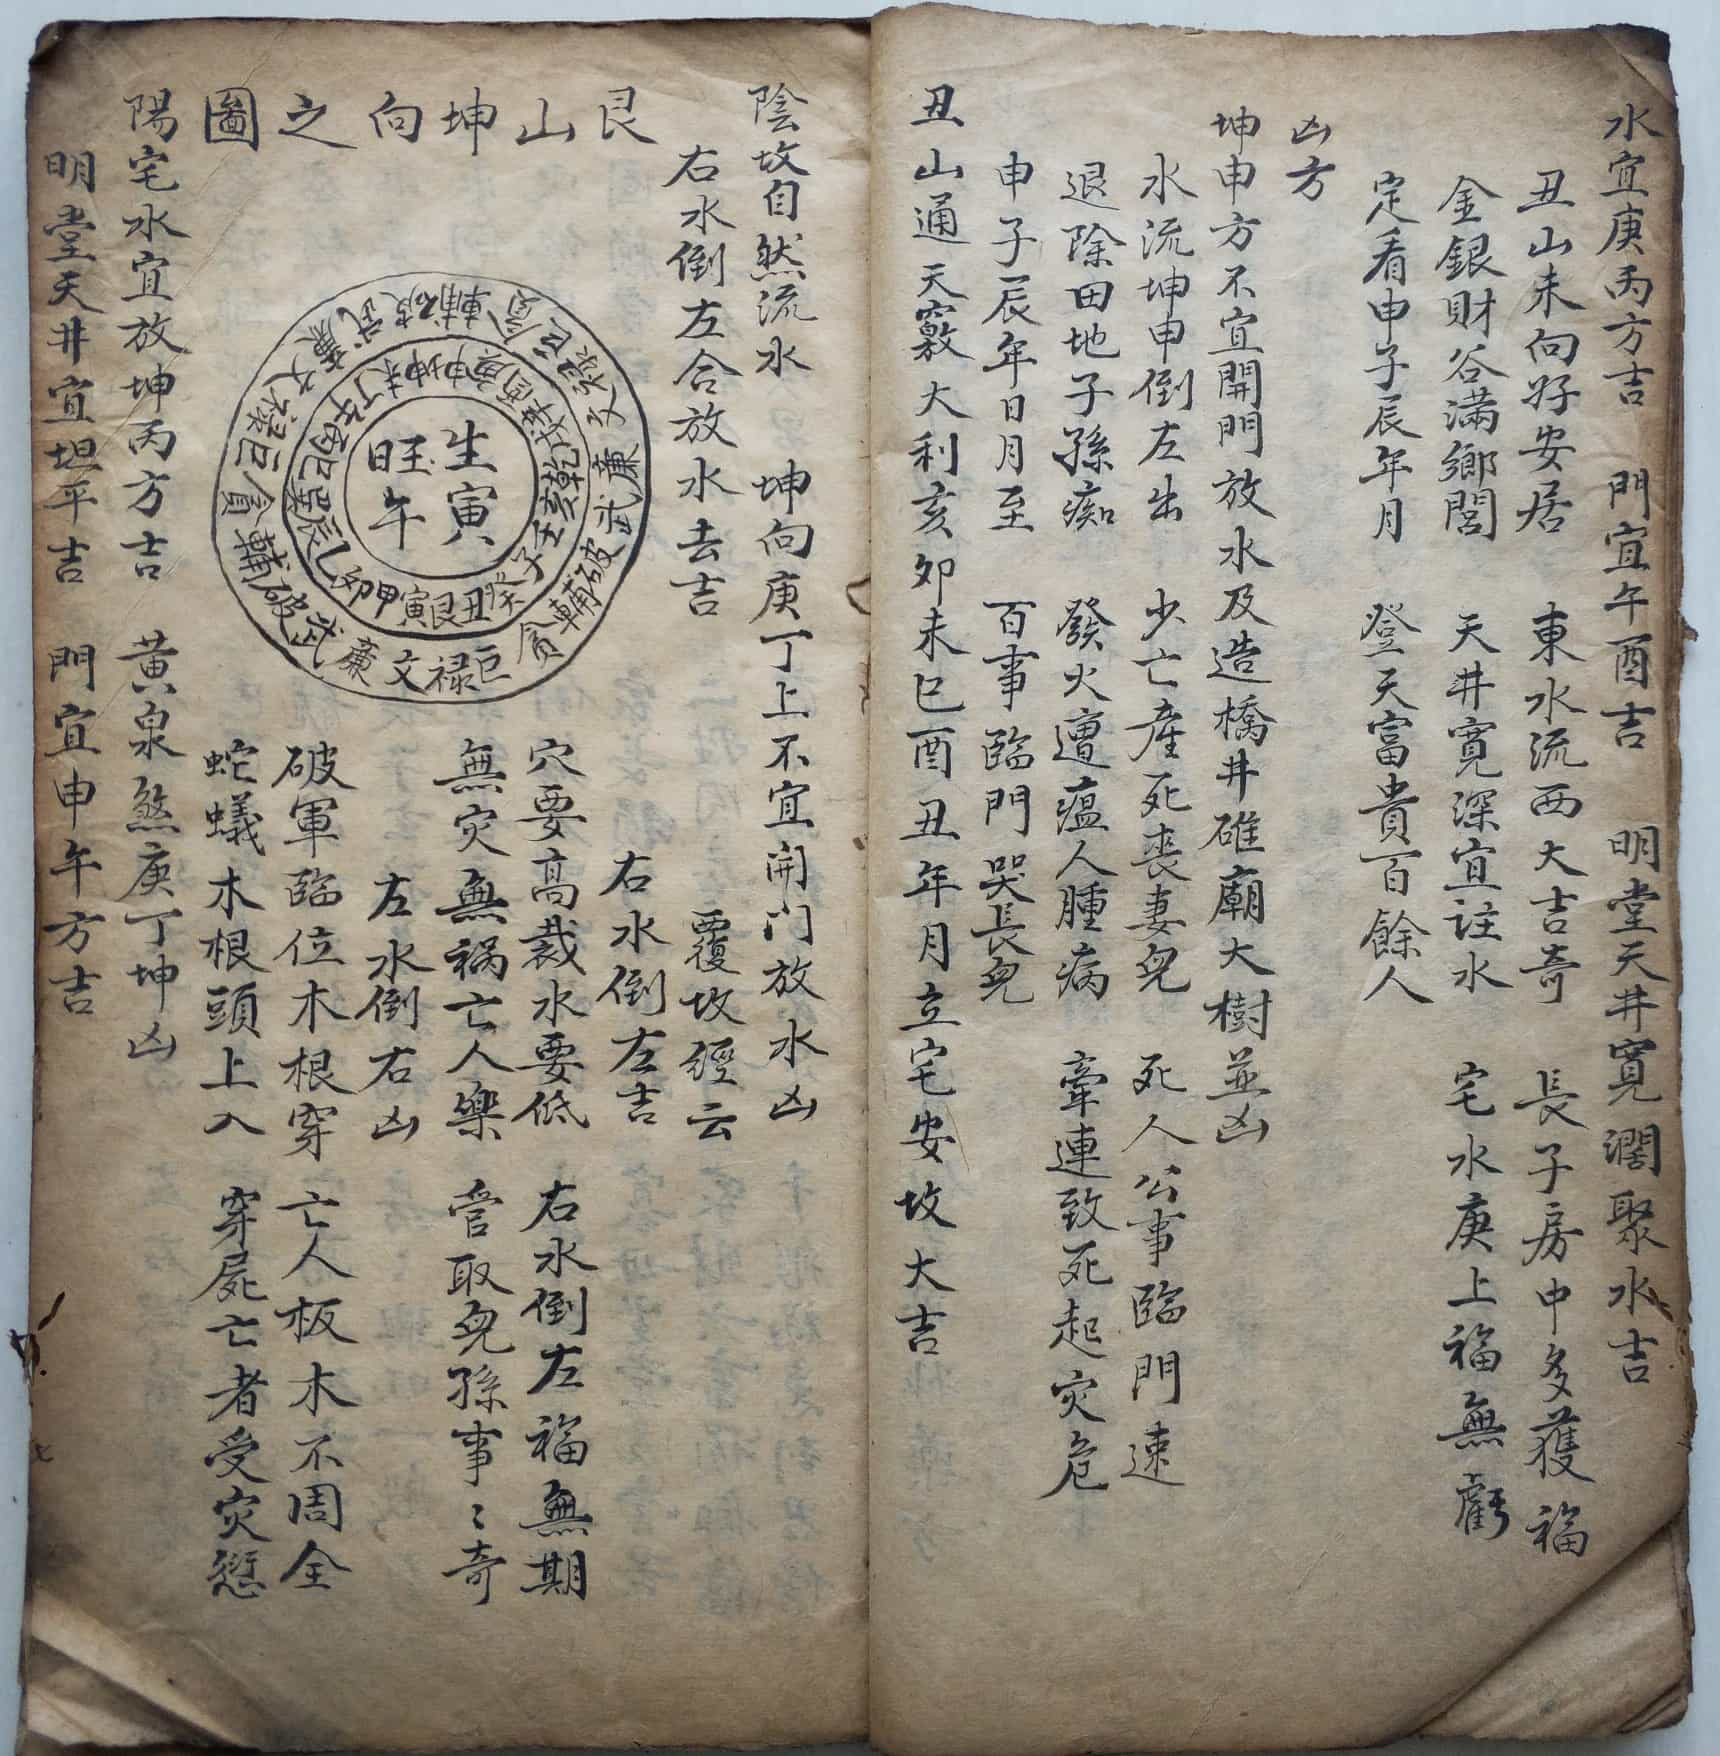 水宜庚丙方吉　門宜午酉吉　明堂天井寬濶聚水吉
丑山未向好安居　東水流西大吉奇　長子房中多獲福
金銀財谷滿鄉閭　天井寬深宜註水　宅水庚上福無虧
定看申子辰年月　登天富貴百餘人
凶方
坤申方不宜開門放水及造橋井碓廟大樹並凶
水流坤申倒左出　少亡産死丧妻兒　死人公事臨門速
退除田地子孫痴　發火遭瘟人腫病　牽連致死起灾危
申子辰年日月至　百事臨門哭長兒
丑山通天竅大利亥卯未巳酉丑年月立宅安坟大吉
陰坟自然流水　坤向庚丁上不宜開门放水凶
右水倒左合放水去吉　覆坟經云
艮山坤向之圖
右水倒左吉
穴要高裁水要低　右水倒左福無期
無灾無禍亡人樂　管取兒孫事〻奇
左水倒右凶
破軍臨位木根穿　亡人板木不周全
蛇蟻木根頭上入　穿屍亡者受灾愆
生寅
旺午
丑艮寅甲卯乙辰巽巳丙午丁未坤申庚酉辛戌乾亥壬子癸
巨禄文廉武破輔貪巨禄文廉武破輔貪巨禄文廉武破輔貪
陽宅水宜放坤丙方吉　黄泉煞庚丁坤凶
明堂天井宜坦平吉　門宜申午方吉